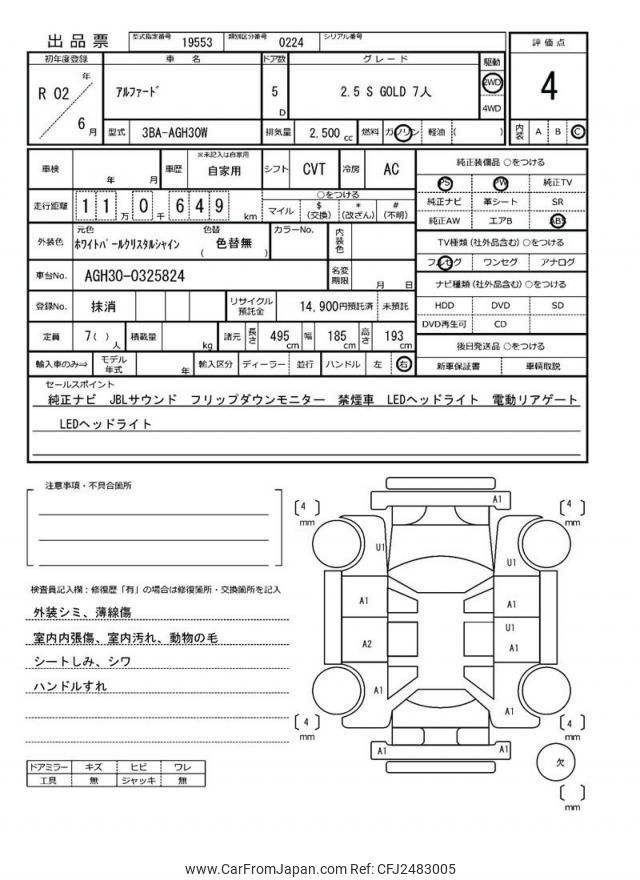 出品票 型式指定番号 19553 類別区分番号 0224 シリアル番号
初年度登録 車名 ドア数 グレード 駆動 評価点
R 02 年 6 月 アルファード 5 D 2.5 S GOLD 7人 2WD 4WD 4
型式 3BA-AGH30W 排気量 2,500 cc 燃料 ガソリン 軽油 ( ) 内装 A B C
車検 年 月 車歴 ※未記入は自家用 自家用 シフト CVT 冷房 AC
走行距離 1 1 万 0 千 6 4 9 km ○をつける マイル $(交換) *(改ざん) #(不明)
外装色 元色 ホワイトパールクリスタルシャイン 色替 ( 色替無 ) カラーNo. 内装色
車台No. AGH30-0325824 名変期限 月 日
登録No. 抹消 リサイクル預託金 14,900円預託済 未預託
定員 7( ) 人 積載量 kg 諸元 長さ 495 cm 幅 185 cm 高さ 193 cm
輸入車のみ⇒ モデル年式 年 輸入区分 ディーラー 並行 ハンドル 左 右
純正装備品 ○をつける
PS PW 純正TV
純正ナビ 革シート SR
純正AW エアB ABS
TV種類(社外品含む)○をつける
フルセグ ワンセグ アナログ
ナビ種類(社外品含む)○をつける
HDD DVD SD
DVD再生可 CD
後日発送品 ○をつける
新車保証書 車輌取説
セールスポイント
純正ナビ JBLサウンド フリップダウンモニター 禁煙車 LEDヘッドライト 電動リアゲート
LEDヘッドライト
注意事項・不具合箇所
検査員記入欄:修復歴「有」の場合は修復箇所・交換箇所を記入
外装シミ、薄線傷
室内内張傷、室内汚れ、動物の毛
シートしみ、シワ
ハンドルすれ
ドアミラー キズ ヒビ ワレ
工具 無 ジャッキ 無
A1
[ 4 ] mm [ 4 ] mm
U1 U1
A1 A1
U1
A2 A1
A1 A1
[ 4 ] mm [ 4 ] mm
A1 A1
欠
[ ] mm
www.CarFromJapan.com Ref: CFJ2483005